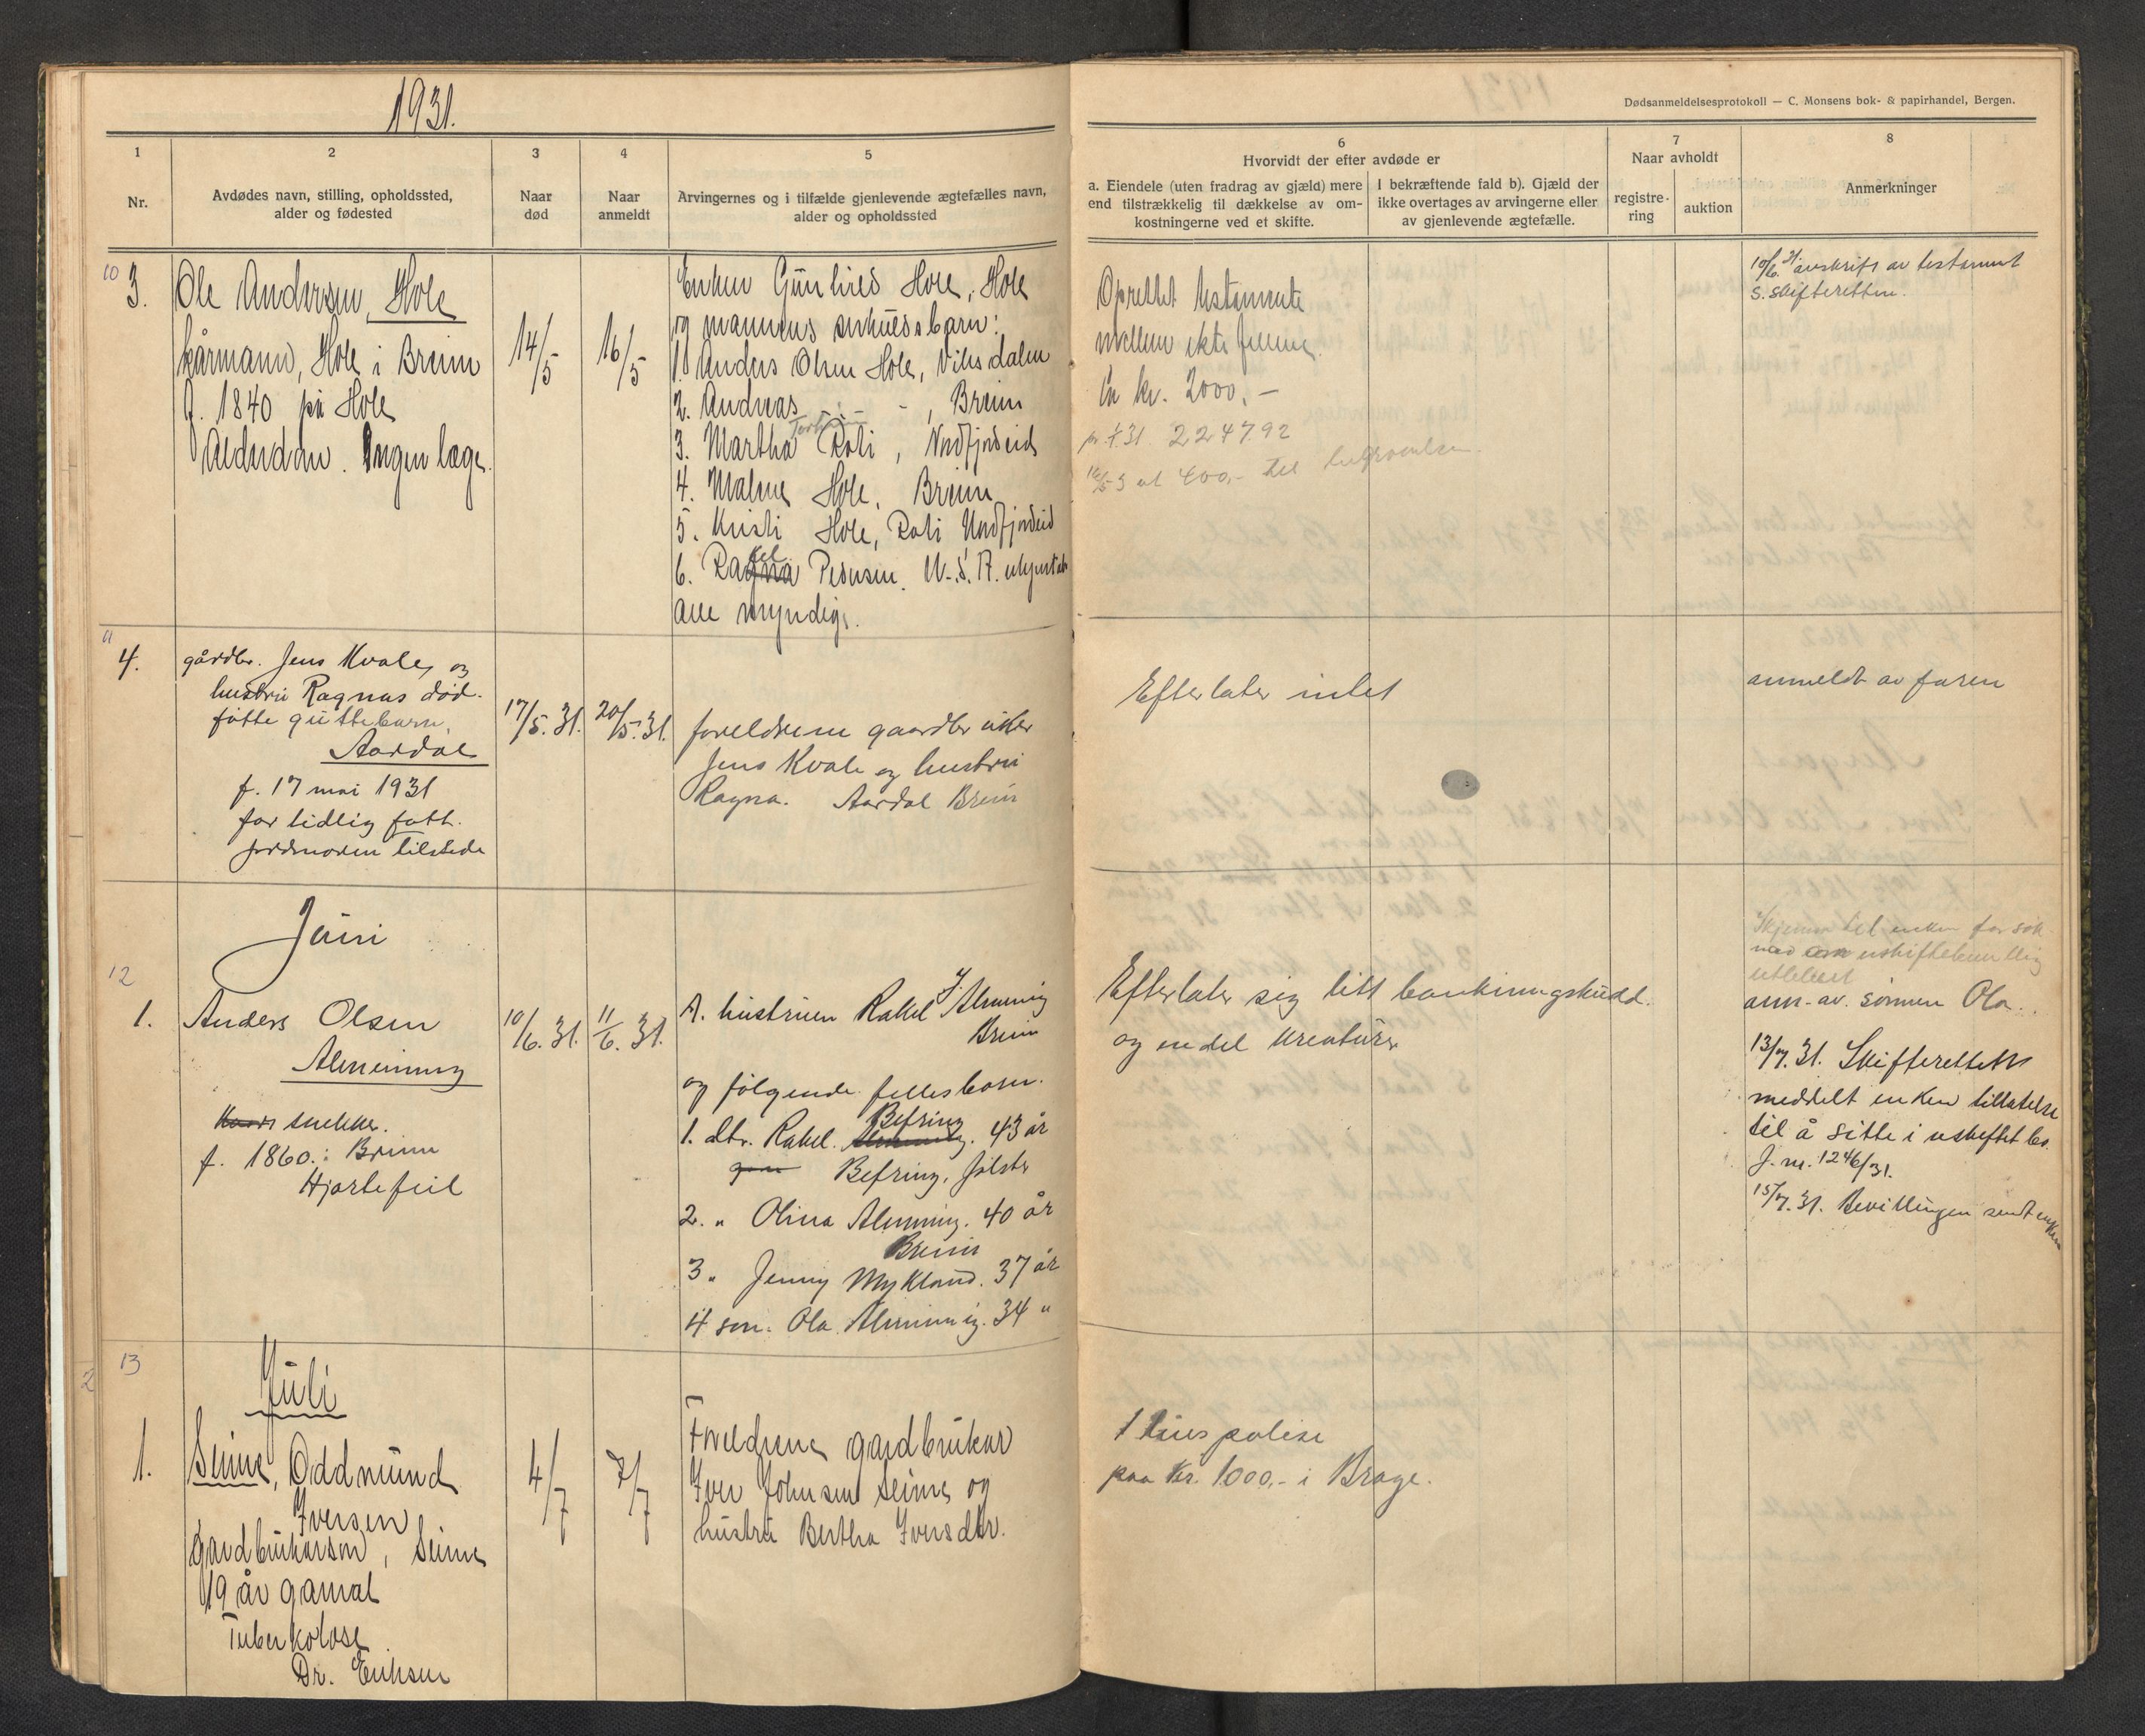 1931.
1
2
3
4
5
Nr.
Avdødes navn, stilling, opholdssted,
alder og fødested
Naar
død
Naar
anmeldt
Arvingernes og i tilfælde gjenlevende ægtefælles navn,
alder og opholdssted
10
3.
Ole Andersen, Hole
kårmann, Hole i Breim
f. 1840 på Hole
Alderdom. Ingen læge.
14/5
16/5
Enken Gunhild Hole, Hole
og mannens særkuldsbarn:
1. Anders Olsen Hole, Viksdalen
2. Andreas - - , Breim
3. Martha Roti, Nordfjordeid
4. Hole, Breim
5. Kristi Hole, Roti Nordfjordeid
6. Rakel Pedersen. U.S.A.
Alle myndige.
11
4.
gårdbr. Jens Kvale, og
hustru Ragnas død-
føtte guttebarn.
Aardal
f. 17 mai 1931
for tidlig født.
Jordmoren tilstede
17/5.31.
20/5.31.
foreldrene gaardbruker
Jens Kvale og hustru
Ragna. Aardal Breim
Juni
12
1.
Anders Olsen
Almenning
snekker.
f. 1860. Breim
Hjertefeil
10/6.31.
11/6.31.
A. hustruen Rakel J. Almenning
Breim
og følgende fellesbarn.
1. dtr. Rakel Befring 43 år
Befring, Jølster
2. " Olina Almenning. 40 år
Breim
3 " Jenny Mykland. 37 år
4 søn. Ola Almenning. 34 "
13
Juli
1.
Seime, Oddmund
Iversen
gardbrukarson, Seime
19 år gamal
Tuberkolose
Dr. Eriksen
4/7
7/7
Foreldrene gardbrukar
Iver Johnsen Seime og
hustru Bertha Iversdtr.
Dødsanmeldelsesprotokoll — C. Monsens bok- & papirhandel, Bergen.
6
Hvorvidt der efter avdøde er
7
Naar avholdt
8
a. Eiendele (uten fradrag av gjæld) mere
end tilstrækkelig til dækkelse av om-
kostningerne ved et skifte.
I bekræftende fald b). Gjæld der
ikke overtages av arvingerne eller
av gjenlevende ægtefælle.
registre-
ring
auktion
Anmerkninger
Oprettet testamente
mellem ektefellene.
kr. 2000,-
2247.92
400,- til begravelsen.
10/6.31 avskrift av testament
s. skifteretten.
Efterlater intet
anmeldt av faren
Efterlater sig litt bankinnskudd.
og en del kreaturer
Skjema til enken for søk-
nad om uskiftebevilling
utlevert
anm. av. sønnen Ola.
13/7.31. Skifteretten
meddelt enken tillatelse
til å sitte i uskiftet bo.
J.nr. 1246/31.
15/7.31. Bevillingen sendt enken
1 livspolise
paa Kr. 1000,- i Brage.